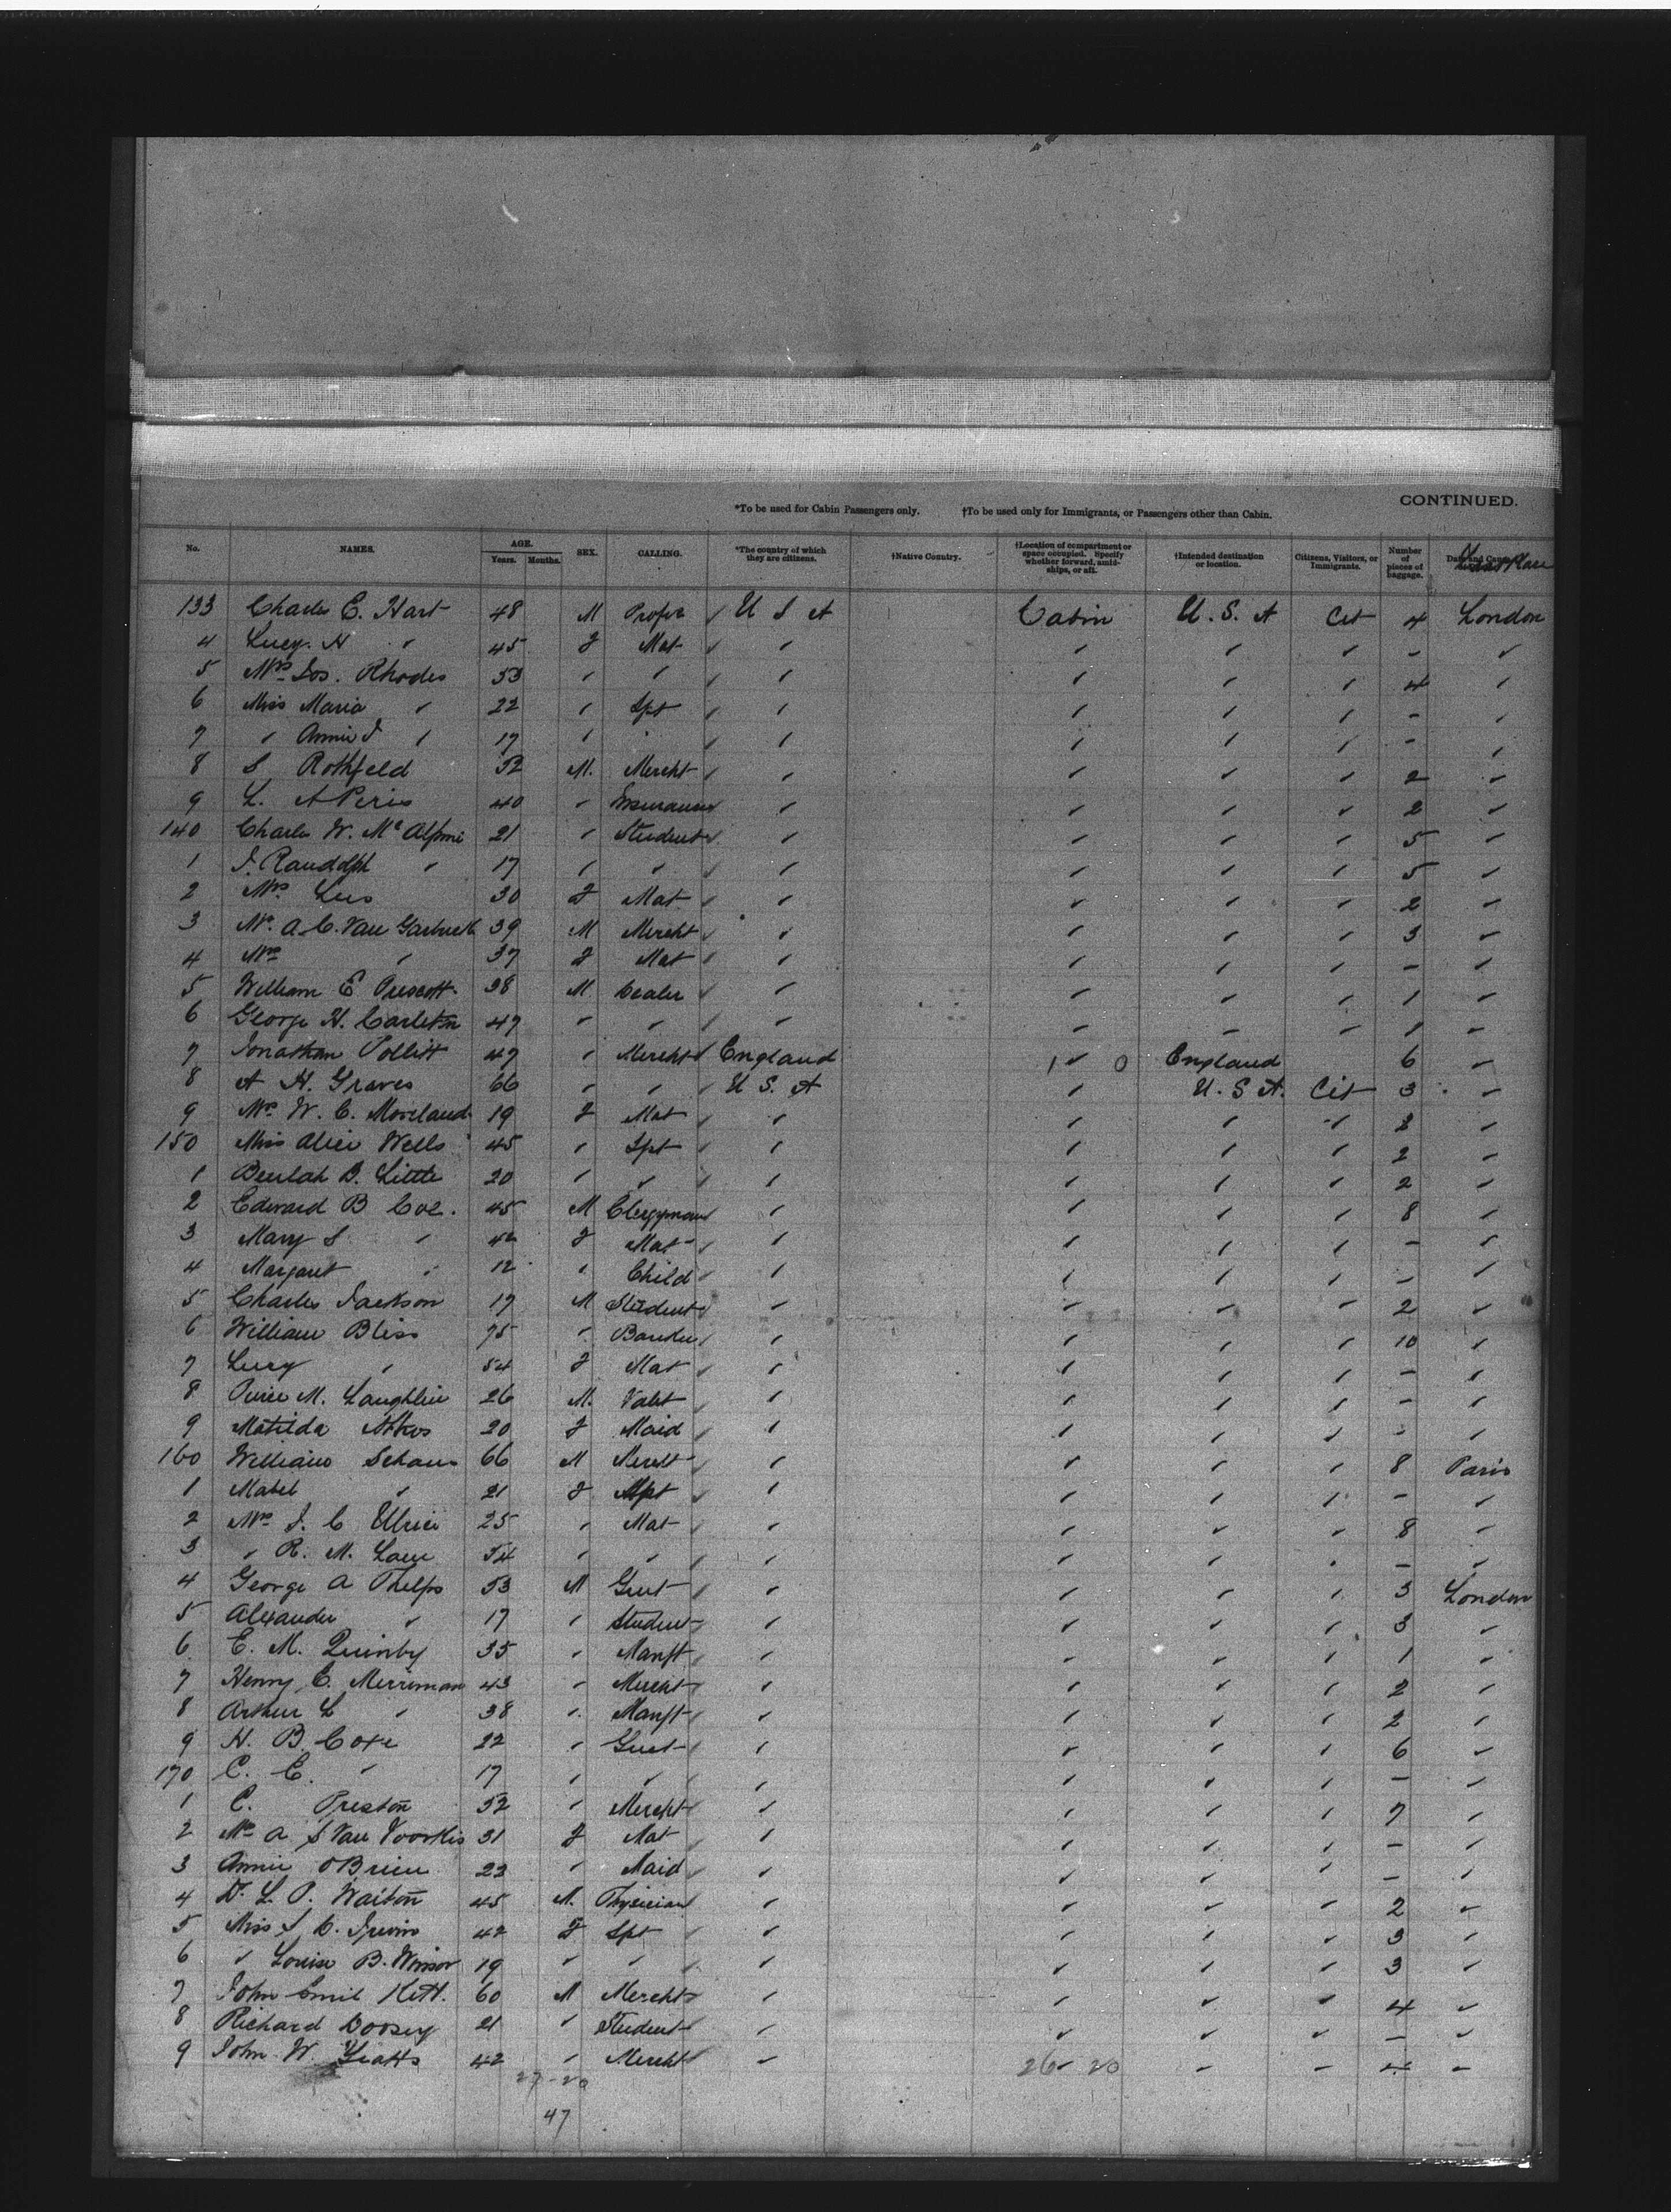 CONTINUED.
*To be used for Cabin Passengers only. †To be used only for Immigrants, or Passengers other than Cabin.
No. NAMES. AGE. Years. Months. SEX. CALLING. *The country of which they are citizens. †Native Country. †Location of compartment or space occupied. Specify whether forward, amidships, or aft. †Intended destination or location. Citizens, Visitors, or Immigrants. Number of pieces of baggage. Place
133 Charles E. Hart 48 M Profsr ✓ U S A Cabin U. S. A Cit 4 London
4 Lucy. H ✓ 45 F Mat ✓ ✓ ✓ ✓ ✓ – ✓
5 Mrs Jos. Rhodes 53 ✓ ✓ ✓ ✓ ✓ ✓ ✓ 4 ✓
6 Miss Maria ✓ 22 ✓ Spt ✓ ✓ ✓ ✓ ✓ – ✓
7 ✓ Annie J ✓ 17 ✓ ✓ ✓ ✓ ✓ ✓ ✓ – ✓
8 S Rothfeld 52 M. Mercht ✓ ✓ ✓ ✓ ✓ 2 ✓
9 L. A Peris 40 ✓ Insurance ✓ ✓ ✓ ✓ 2 ✓
140 Charles W. McAlpine 21 ✓ Student ✓ ✓ ✓ ✓ ✓ 5 ✓
1 J. Randolph ✓ 17 ✓ ✓ ✓ ✓ ✓ ✓ ✓ 5 ✓
2 Mrs. 30 F Mat ✓ ✓ ✓ ✓ ✓ 2 ✓
3 Mr. A. C. Van 39 M Mercht ✓ ✓ ✓ ✓ ✓ 3 ✓
4 Mrs ✓ 37 F Mat ✓ ✓ ✓ ✓ ✓ – ✓
5 William E Prescott 38 M Dealer ✓ ✓ ✓ ✓ ✓ 1 ✓
6 George H. Carleton 47 ✓ ✓ ✓ ✓ ✓ ✓ ✓ 1 ✓
7 Jonathan Pollitt 47 ✓ Mercht ✓ England 1 ✓ 0 England 6 ✓
8 A H. Graves 66 ✓ ✓ ✓ U S. A ✓ U. S A. Cit 3 ✓
9 Mrs W. C. Moreland 19 F Mat ✓ ✓ ✓ ✓ ✓ 2 ✓
150 Miss Alice Wells 45 ✓ Spt ✓ ✓ ✓ ✓ ✓ 2 ✓
1 Beulah B. Little 20 ✓ ✓ ✓ ✓ ✓ ✓ ✓ 2 ✓
2 Edward B Coe. 45 M Clergyman ✓ ✓ ✓ ✓ 8 ✓
3 Mary S ✓ 42 F Mat ✓ ✓ ✓ ✓ ✓ – ✓
4 Margaret ✓ 12 ✓ Child ✓ ✓ ✓ ✓ ✓ – ✓
5 Charles Jackson 17 M Student ✓ ✓ ✓ ✓ ✓ 2 ✓
6 William Bliss 75 ✓ Banker ✓ ✓ ✓ ✓ ✓ 10 ✓
7 Lucy ✓ 54 F Mat ✓ ✓ ✓ ✓ ✓ – ✓
8 M. Laughlin 26 M. Valet ✓ ✓ ✓ ✓ ✓ – ✓
9 Matilda 20 F Maid ✓ ✓ ✓ ✓ ✓ – ✓
160 William Schaus 66 M Mercht ✓ ✓ ✓ ✓ 8 Paris
1 Mabel ✓ 21 F Spt ✓ ✓ ✓ ✓ ✓ – ✓
2 Mrs J. C Ulrici 25 ✓ Mat ✓ ✓ ✓ ✓ ✓ 8 ✓
3 ✓ R. M. 54 ✓ ✓ ✓ ✓ ✓ ✓ ✓ – ✓
4 George A Phelps 53 M Gent ✓ ✓ ✓ ✓ ✓ 3 London
5 Alexander ✓ 17 ✓ Student ✓ ✓ ✓ ✓ 3 ✓
6 E. M. Quinby 35 ✓ Manft ✓ ✓ ✓ ✓ ✓ 1 ✓
7 Henry C. Merriman 43 ✓ Mercht ✓ ✓ ✓ ✓ ✓ 2 ✓
8 Arthur L ✓ 38 ✓ Manft ✓ ✓ ✓ ✓ ✓ 2 ✓
9 H. B. Coxe 22 ✓ Gent ✓ ✓ ✓ ✓ ✓ 6 ✓
170 C. E. ✓ 17 ✓ ✓ ✓ ✓ ✓ ✓ ✓ – ✓
1 C. Preston 52 ✓ Mercht ✓ ✓ ✓ ✓ ✓ 7 ✓
2 Mrs A S Van Voorhis 31 F Mat ✓ ✓ ✓ ✓ ✓ – ✓
3 Annie OBrien 22 ✓ Maid ✓ ✓ ✓ ✓ ✓ – ✓
4 Dr. L. P. Walton 45 M. Physician ✓ ✓ ✓ ✓ 2 ✓
5 Miss S. C. 42 F Spt ✓ ✓ ✓ ✓ ✓ 3 ✓
6 ✓ Louise B. Winsor 19 ✓ ✓ ✓ ✓ ✓ ✓ ✓ 3 ✓
7 John Emil Hett. 60 M Mercht ✓ ✓ ✓ ✓ ✓ 4 ✓
8 Richard Doosey 21 ✓ Student ✓ ✓ ✓ ✓ ✓ – ✓
9 John W. Yeatts 42 ✓ Mercht ✓ ✓ 26 – 20 – – 4 –
27 – 20
47